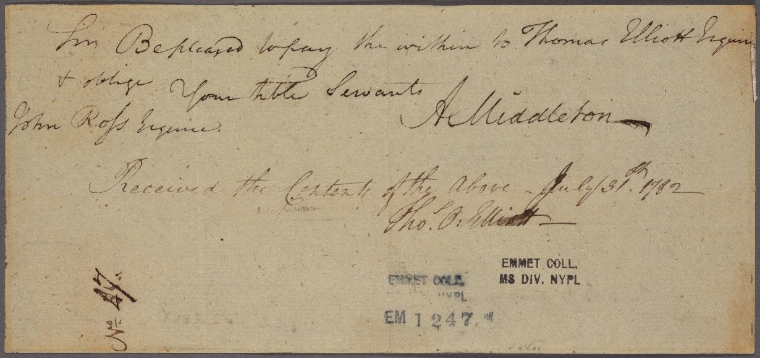 Sir Be pleased to pay the within to Thomas Elliott Esquire
& oblige Your hble Servants
John Ross Esquire.
A Middleton
Received the Contents of the Above July 31st. 1782
Thos. O. Elliott
No. 47.
EMMET COLL.
MS DIV. NYPL
EMMET COLL.
NYPL
EM 1247